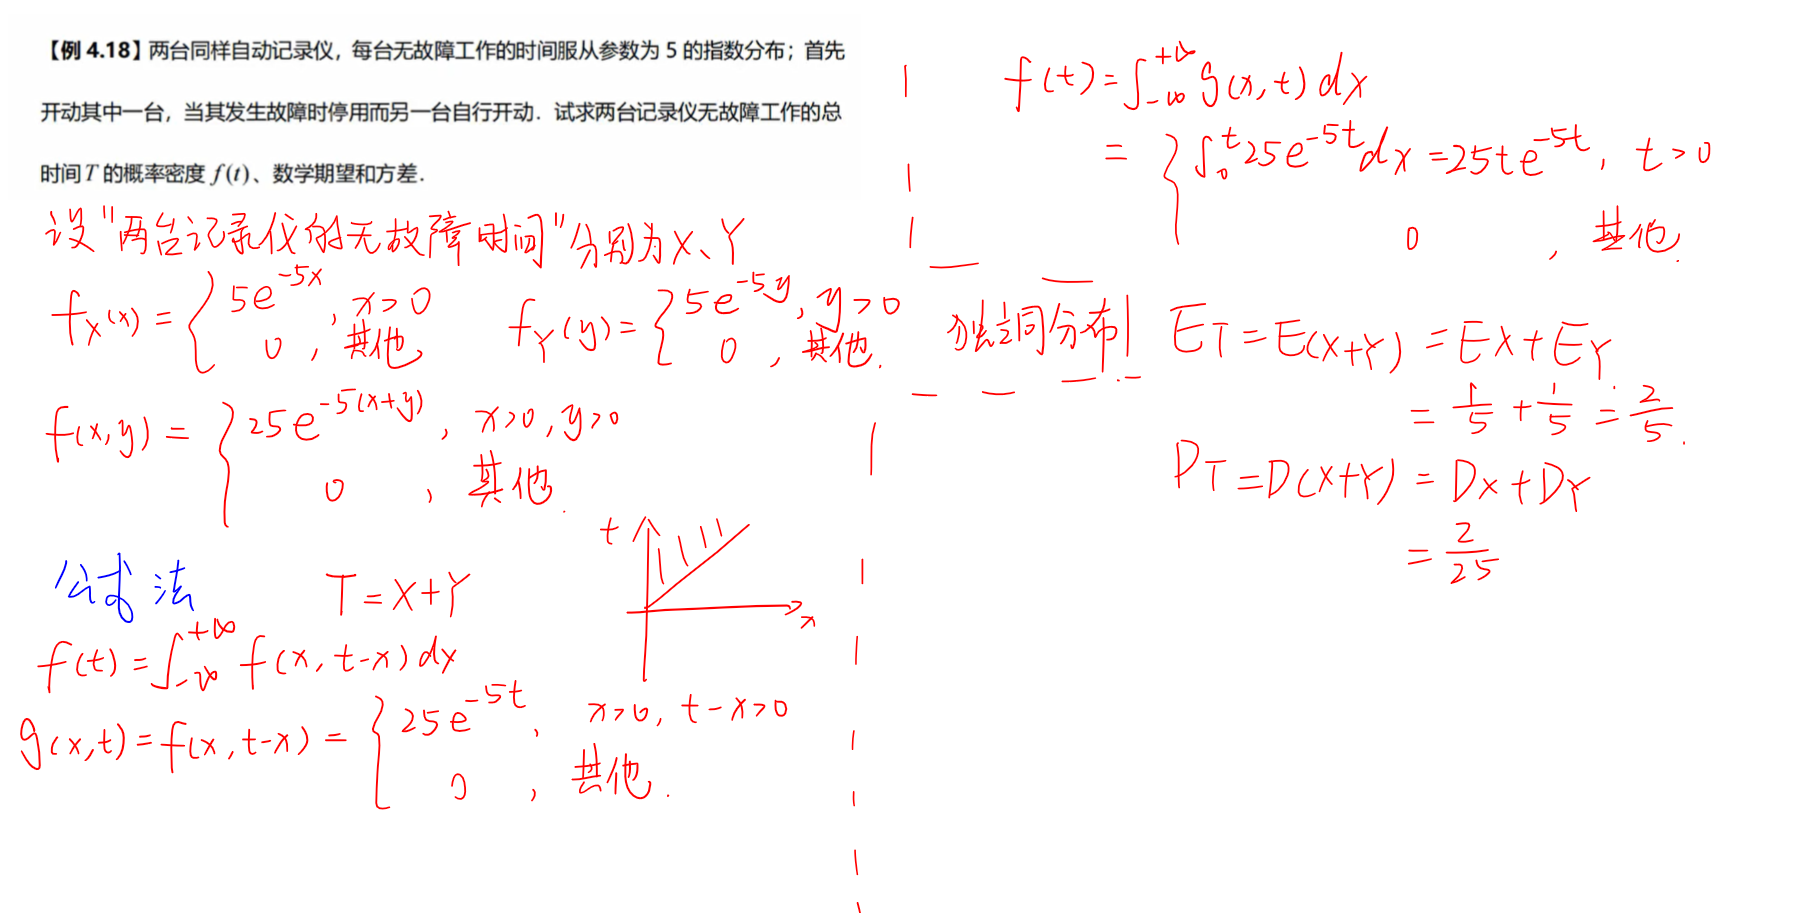 【例 4.18】两台同样自动记录仪，每台无故障工作的时间服从参数为 5 的指数分布；首先
开动其中一台，当其发生故障时停用而另一台自行开动．试求两台记录仪无故障工作的总
时间 T 的概率密度 f(t)、数学期望和方差．
设"两台记录仪的无故障时间"分别为X、Y
f_X(x) = { 5e^{-5x}, x>0
0, 其他
f_Y(y) = { 5e^{-5y}, y>0
0, 其他.
独立同分布
f(x,y) = { 25e^{-5(x+y)}, x>0, y>0
0, 其他.
公式法
T = X+Y
t
x
f(t) = ∫_{-∞}^{+∞} f(x, t-x) dx
g(x,t) = f(x, t-x) = { 25e^{-5t}, x>0, t-x>0
0, 其他.
f(t) = ∫_{-∞}^{+∞} g(x,t) dx
= { ∫_0^t 25e^{-5t} dx = 25te^{-5t}, t>0
0, 其他.
ET = E(X+Y) = EX + EY
= 1/5 + 1/5 = 2/5.
DT = D(X+Y) = DX + DY
= 2/25